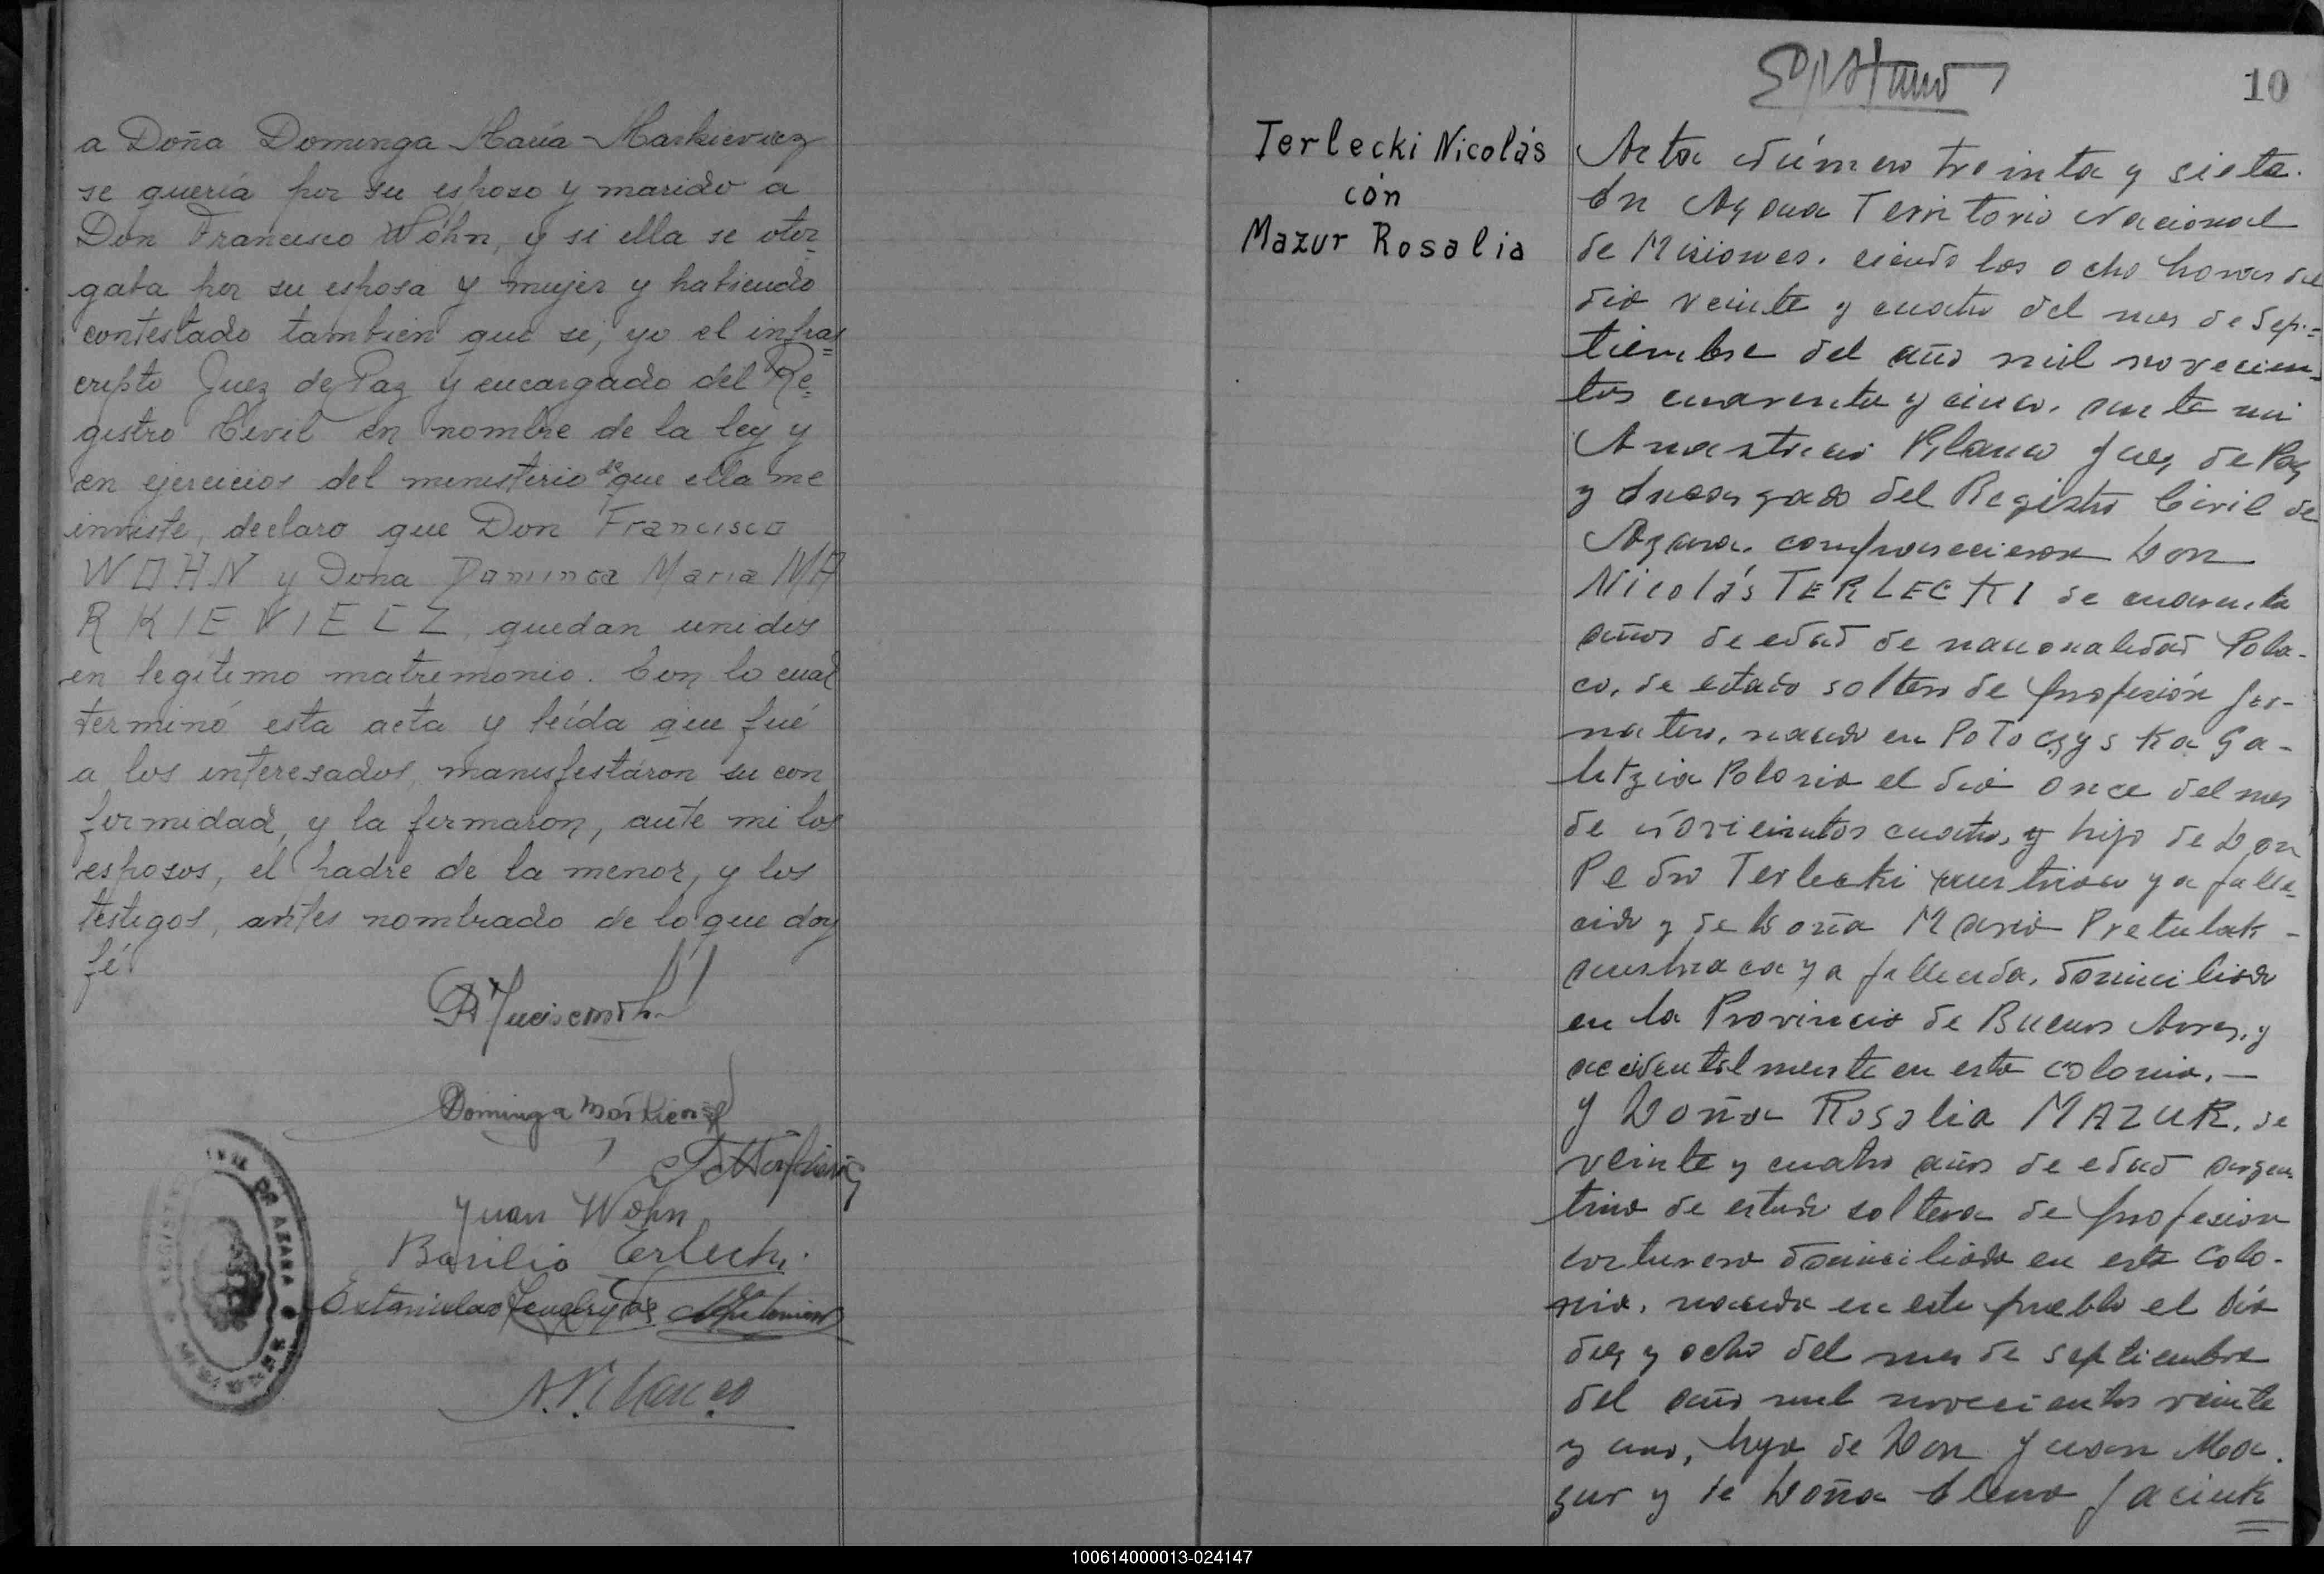 a Doña Dominga María Markieviez
se quería por su esposo y marido a
Don Francisco Wöhn, y si ella se otor=
gaba por su esposa y mujer y habiendo
contestado tambien que si, yo el infras=
cripto Juez de Paz y encargado del Re=
gistro Civil en nombre de la ley y
en ejercicios del ministerio de que ella me
inviste, declaro que Don Francisco
WOHN y Doña Dominga Maria MA
RKIEVIECZ, quedan unidos
en legitimo matrimonio. Con lo cual
terminó esta acta y leída que fué
a los interesados, manisfestáron su con
formidad, y la firmaron, ante mi los
esposos, el padre de la menor, y los
testigos, antes nombrado de lo que doy
fé.
Dominga Markievi
Juan Wohn
Basilio Terlecki
Estanislao
A. Blanco
REGISTRO DE AZARA MISIONES
10
Terlecki Nicolás
con
Mazur Rosalia
Acta Número treinta y siete.
En Azara Territorio Nacional
de Misiones. siendo las ocho horas del
dia veinte y cuatro del mes de Sep.=
tiembre del año mil novecien=
tos cuarenta y cinco. ante mi
Anastacio Blanco Juez de Paz
y Encargado del Registro Civil de
Azara. comparecieron Don
Nicolás TERLECKI de cuarenta
años de edad de nacionalidad Pola-
co, de estado soltero de profesión jor-
natero, nacido en Potoczyska Ga-
litzia Polonia el dia once del mes
de novicientos cuatro, y hijo de Don
Pedro Terlecki austriaco ya falle=
cido y de Doña Maria Pretulak -
austriaca ya fallecida, domiciliado
en la Provincia de Buenos Aires, y
accidentalmente en esta colonia. —
y Doña Rosalia MAZUR, de
veinte y cuatro años de edad argen=
tina de estado soltera de profesion
costurera domiciliada en esta Colo-
nia, nacida en este pueblo el día
diez y ocho del mes de septiembre
del año mil novecientos veinte
y uno, hija de Don Juan Ma.
zur y de Doña Elena Jacink
100614000013-024147